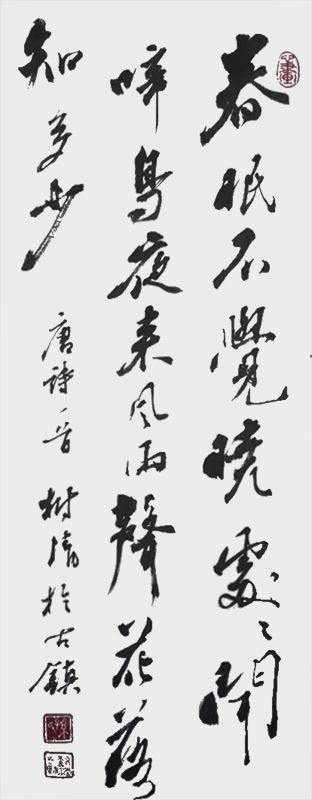 春眠不覺曉處々聞
啼鳥夜来風雨聲花落
知多少
唐詩一首樹清於古鎮